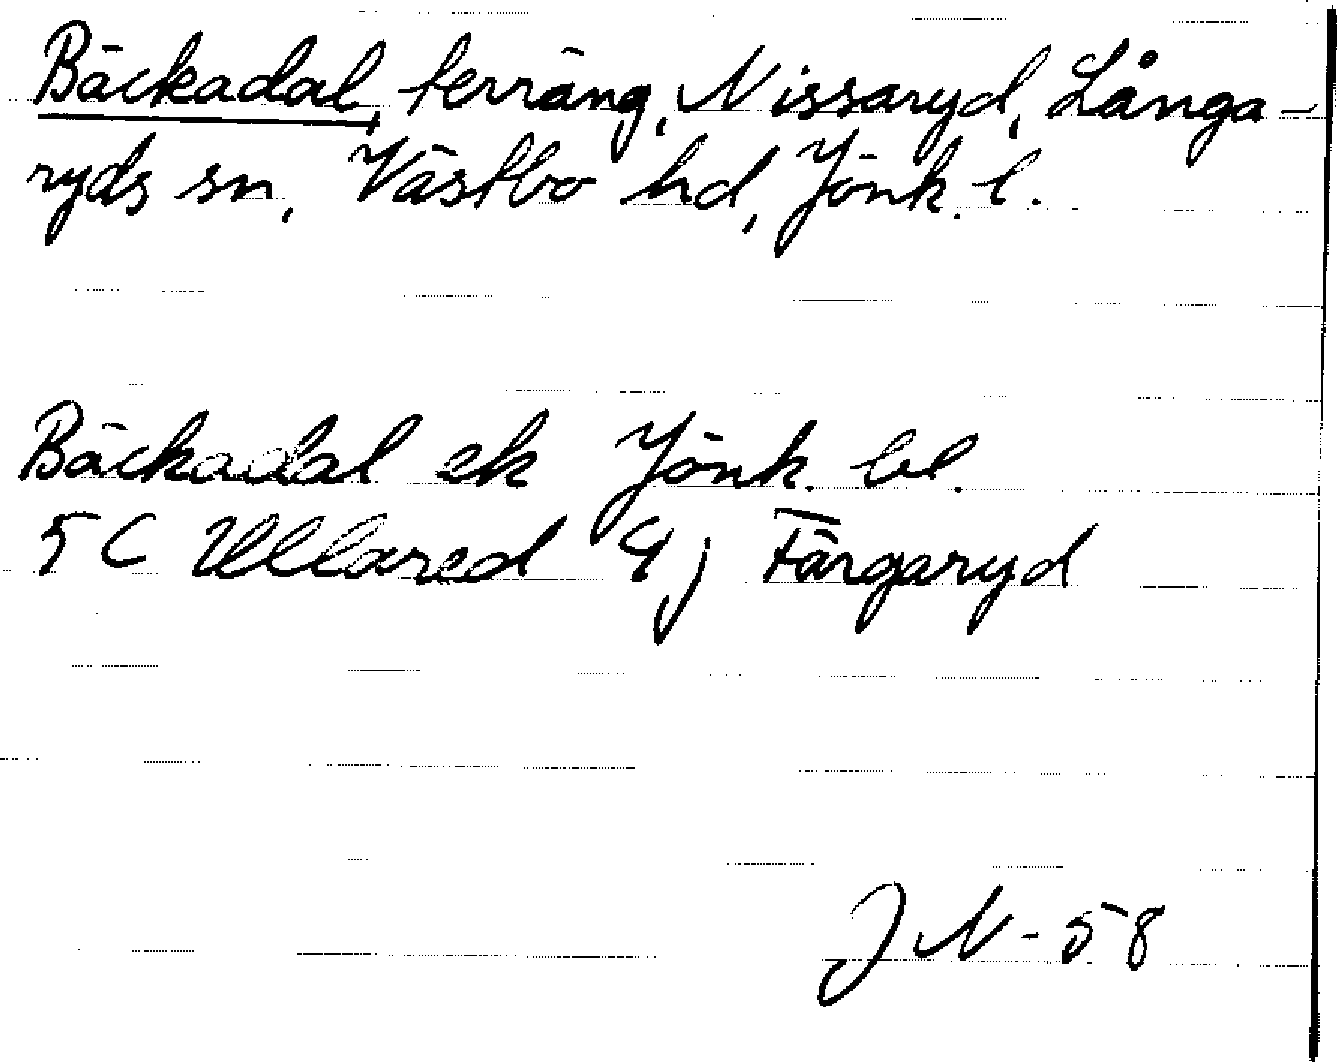 Bäckadal, terräng, Nissaryd, Långa-
ryds sn, Västbo hd, Jönk. l.
Bäckadal ek Jönk. bl.
5 C Ullared 4 j Färgaryd
J N - 58